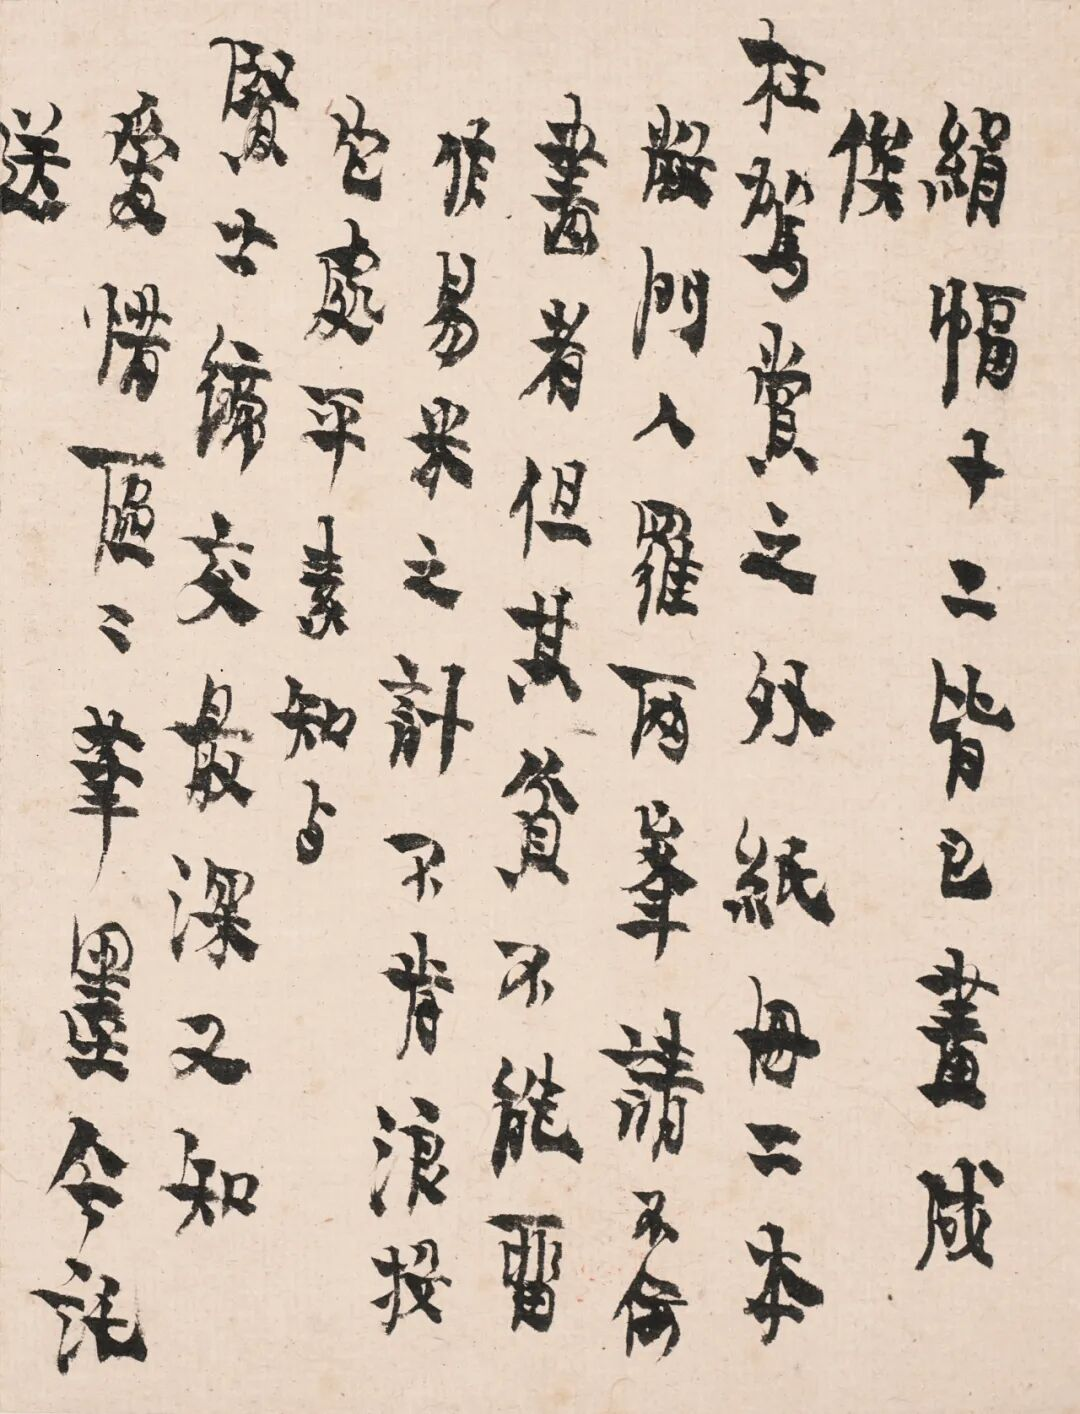 絹幅十二皆已畫成
俟
枉駕賞之外紙冊二本
敝門人羅兩峯請不佞
畫者但其貧不能留
作易米之計不肯浪投
它處平素知与
賢士締交最深又知
愛惜區〻筆墨今託
送